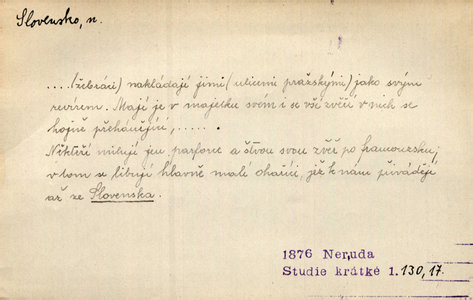 Slovensko, n.
....(žebráci) nakládají jimi (ulicemi pražskými) jako svým
revírem. Mají je v majetku svém i se vší zvěří v nich se
hojně přehánějící, ......
Někteří milují jen parforce a štvou svou zvěř po francouzsku;
v tom se libují hlavně malí oharíci, jež k nám přivádějí
až ze Slovenska.
1876 Neruda
Studie krátké 1.130,17.